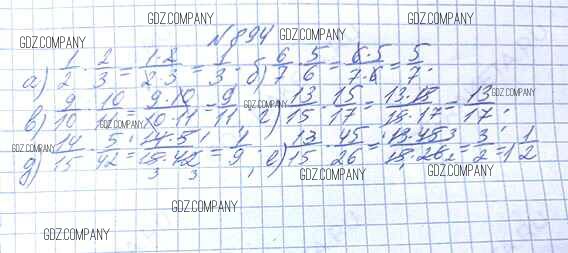 GDZ.COMPANY
GDZ.COMPANY №894 GDZ.COMPANY
а) 1/2 · 2/3 = 1·2/2·3 = 1/3; б) 6/7 · 5/6 = 6·5/7·6 = 5/7;
в) 9/10 · 10/11 = 9·10/10·11 = 9/11; г) 13/15 · 15/17 = 13·15/15·17 = 13/17;
GDZ.COMPANY GDZ.COMPANY
д) 14/15 · 5/42 = 14·5/15·42 = 1/9; е) 13/15 · 45/26 = 13·45/15·26 = 3/2 = 1 1/2
GDZ.COMPANY GDZ.COMPANY
GDZ.COMPANY
GDZ.COMPANY